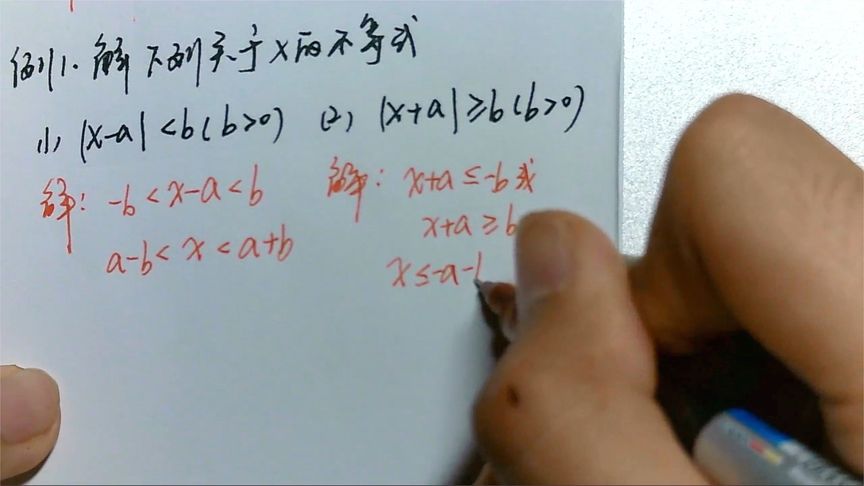 例1. 解下列关于x的不等式
(1) |x-a|<b(b>0) (2) |x+a|≥b(b>0)
解: -b<x-a<b
a-b<x<a+b
解: x+a≤-b或
x+a≥b
x≤-a-